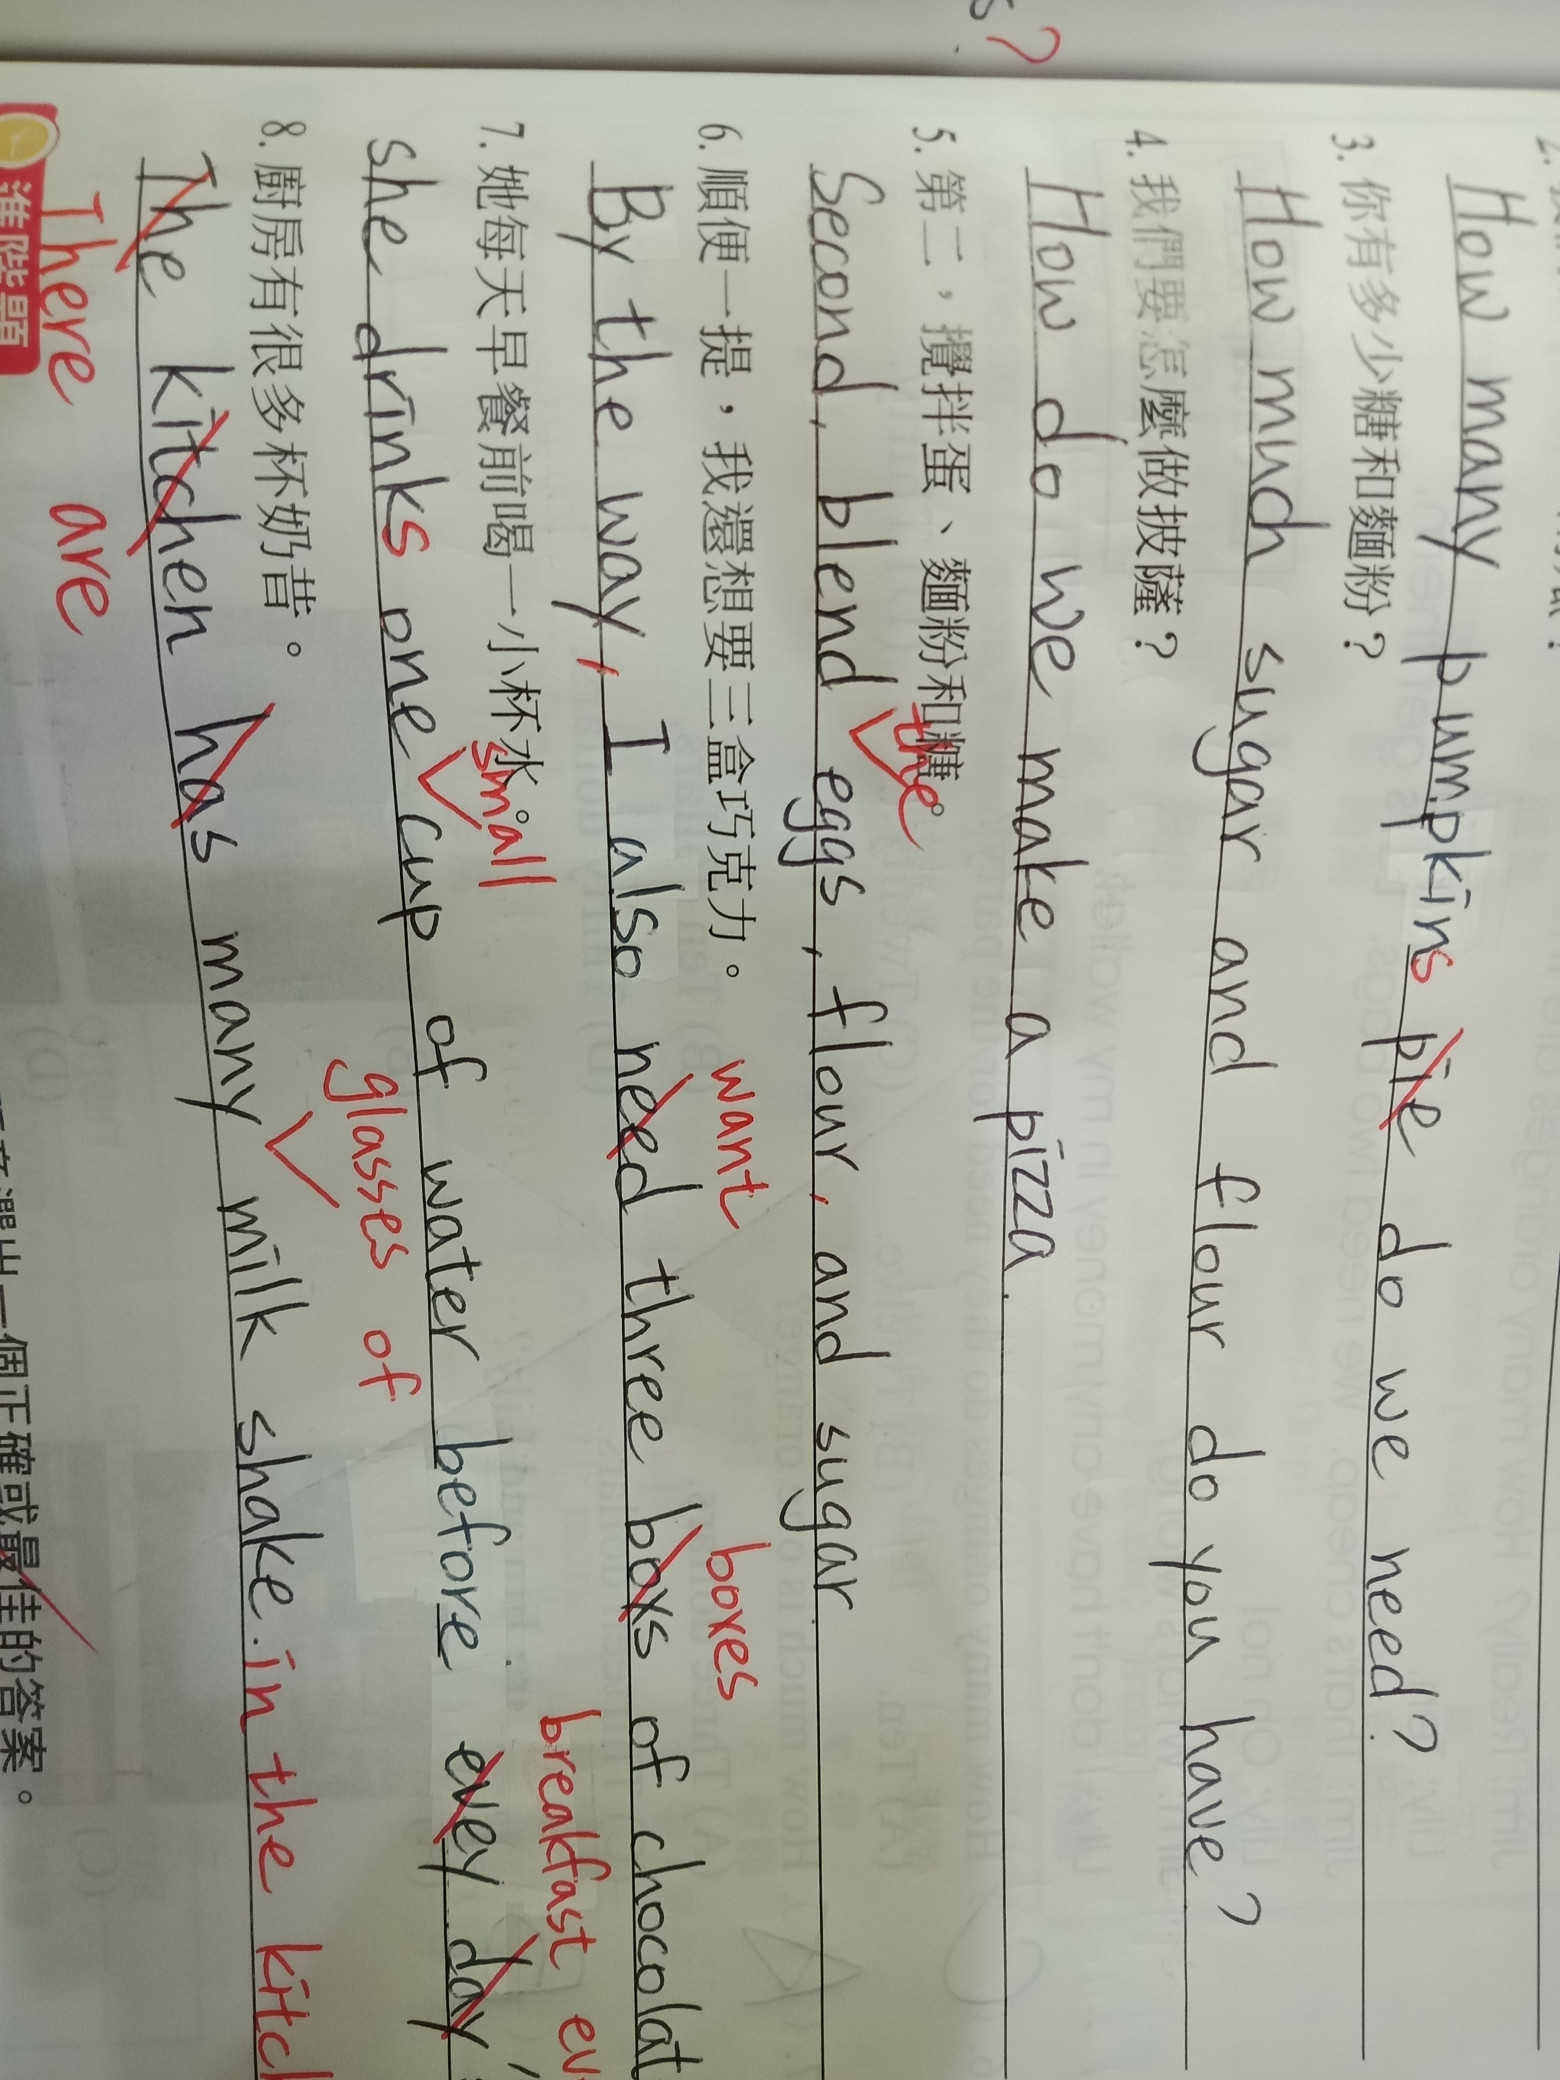 s?
How many pumpkins pie do we need?
3. 你有多少糖和麵粉？
How much sugar and flour do you have?
4. 我們要怎麼做披薩？
How do we make a pizza.
5. 第二，攪拌蛋、麵粉和糖。
the
Second, blend eggs, flour, and sugar.
6. 順便一提，我還想要三盒巧克力。
want boxes
By the way, I also need three boxs of chocolat
7. 她每天早餐前喝一小杯水。
small breakfast ev
she drinks one cup of water before evey day
8. 廚房有很多杯奶昔。
glasses of
The kitchen has many milk shake. in the kitch
There are
進階題
選出一個正確或最佳的答案。